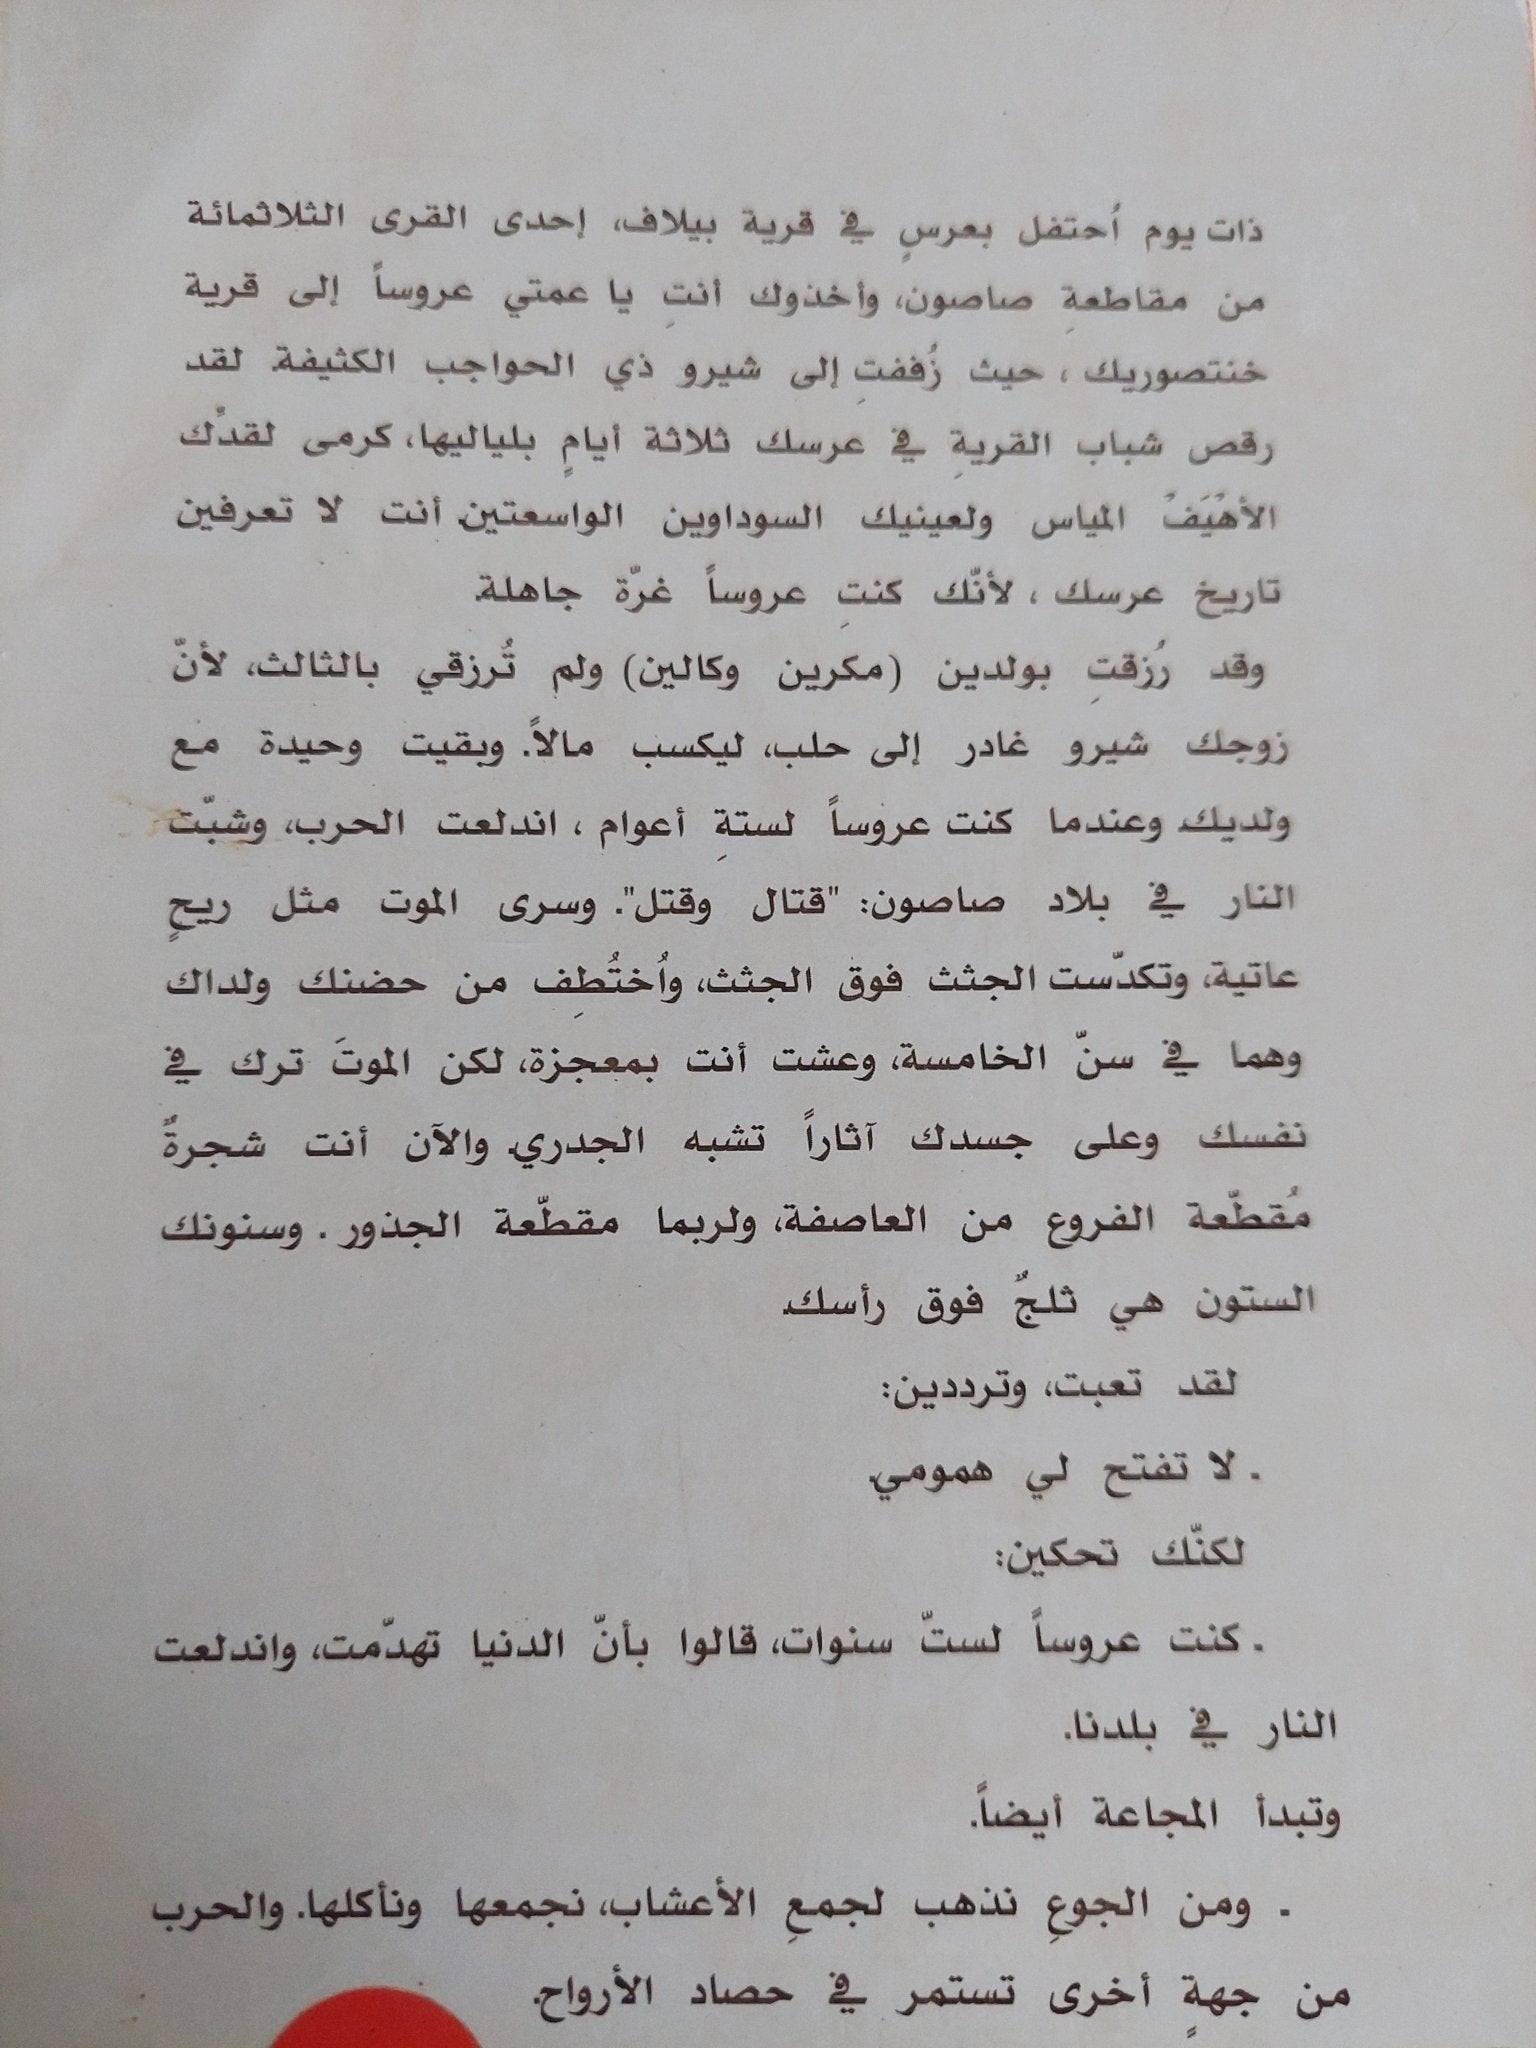 ذات يوم اُحتفل بعرسٍ في قرية بيلاف، إحدى القرى الثلاثمائة
من مقاطعةِ صاصون، وأخذوك أنتِ يا عمتي عروساً إلى قرية
خنتصوريك ، حيث زُففتِ إلى شيرو ذي الحواجب الكثيفة. لقد
رقص شباب القريةِ في عرسك ثلاثة أيامٍ بلياليها، كرمى لقدِّك
الأهْيَفْ المياس ولعينيك السوداوين الواسعتين. أنت لا تعرفين
تاريخ عرسك ، لأنّك كنتِ عروساً غرّة جاهلة.
وقد رُزقتِ بولدين (مكرين وكالين) ولم تُرزقي بالثالث، لأنّ
زوجك شيرو غادر إلى حلب، ليكسب مالاً. وبقيت وحيدة مع
ولديك. وعندما كنت عروساً لستةِ أعوام ، اندلعت الحرب، وشبّت
النار في بلاد صاصون: "قتال وقتل". وسرى الموت مثل ريحٍ
عاتية، وتكدّست الجثث فوق الجثث، واُختُطِف من حضنك ولداك
وهما في سنّ الخامسة، وعشت أنت بمعجزة، لكن الموتَ ترك في
نفسك وعلى جسدك آثاراً تشبه الجدري. والآن أنت شجرةٌ
مُقطّعة الفروع من العاصفة، ولربما مقطّعة الجذور . وسنونك
الستون هي ثلجٌ فوق رأسك.
لقد تعبت، وترددين:
. لا تفتح لي همومي.
لكنّك تحكين:
. كنت عروساً لستّ سنوات، قالوا بأنّ الدنيا تهدّمت، واندلعت
النار في بلدنا.
وتبدأ المجاعة أيضاً.
. ومن الجوعِ نذهب لجمعِ الأعشاب، نجمعها ونأكلها. والحرب
من جهةٍ أخرى تستمر في حصاد الأرواح.